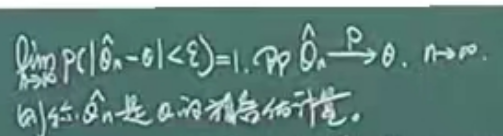 lim n→∞ P(|θ̂n-θ|<ε)=1. 即 θ̂n —P→ θ. n→∞.
则称 θ̂n 是 θ 的相合估计量。